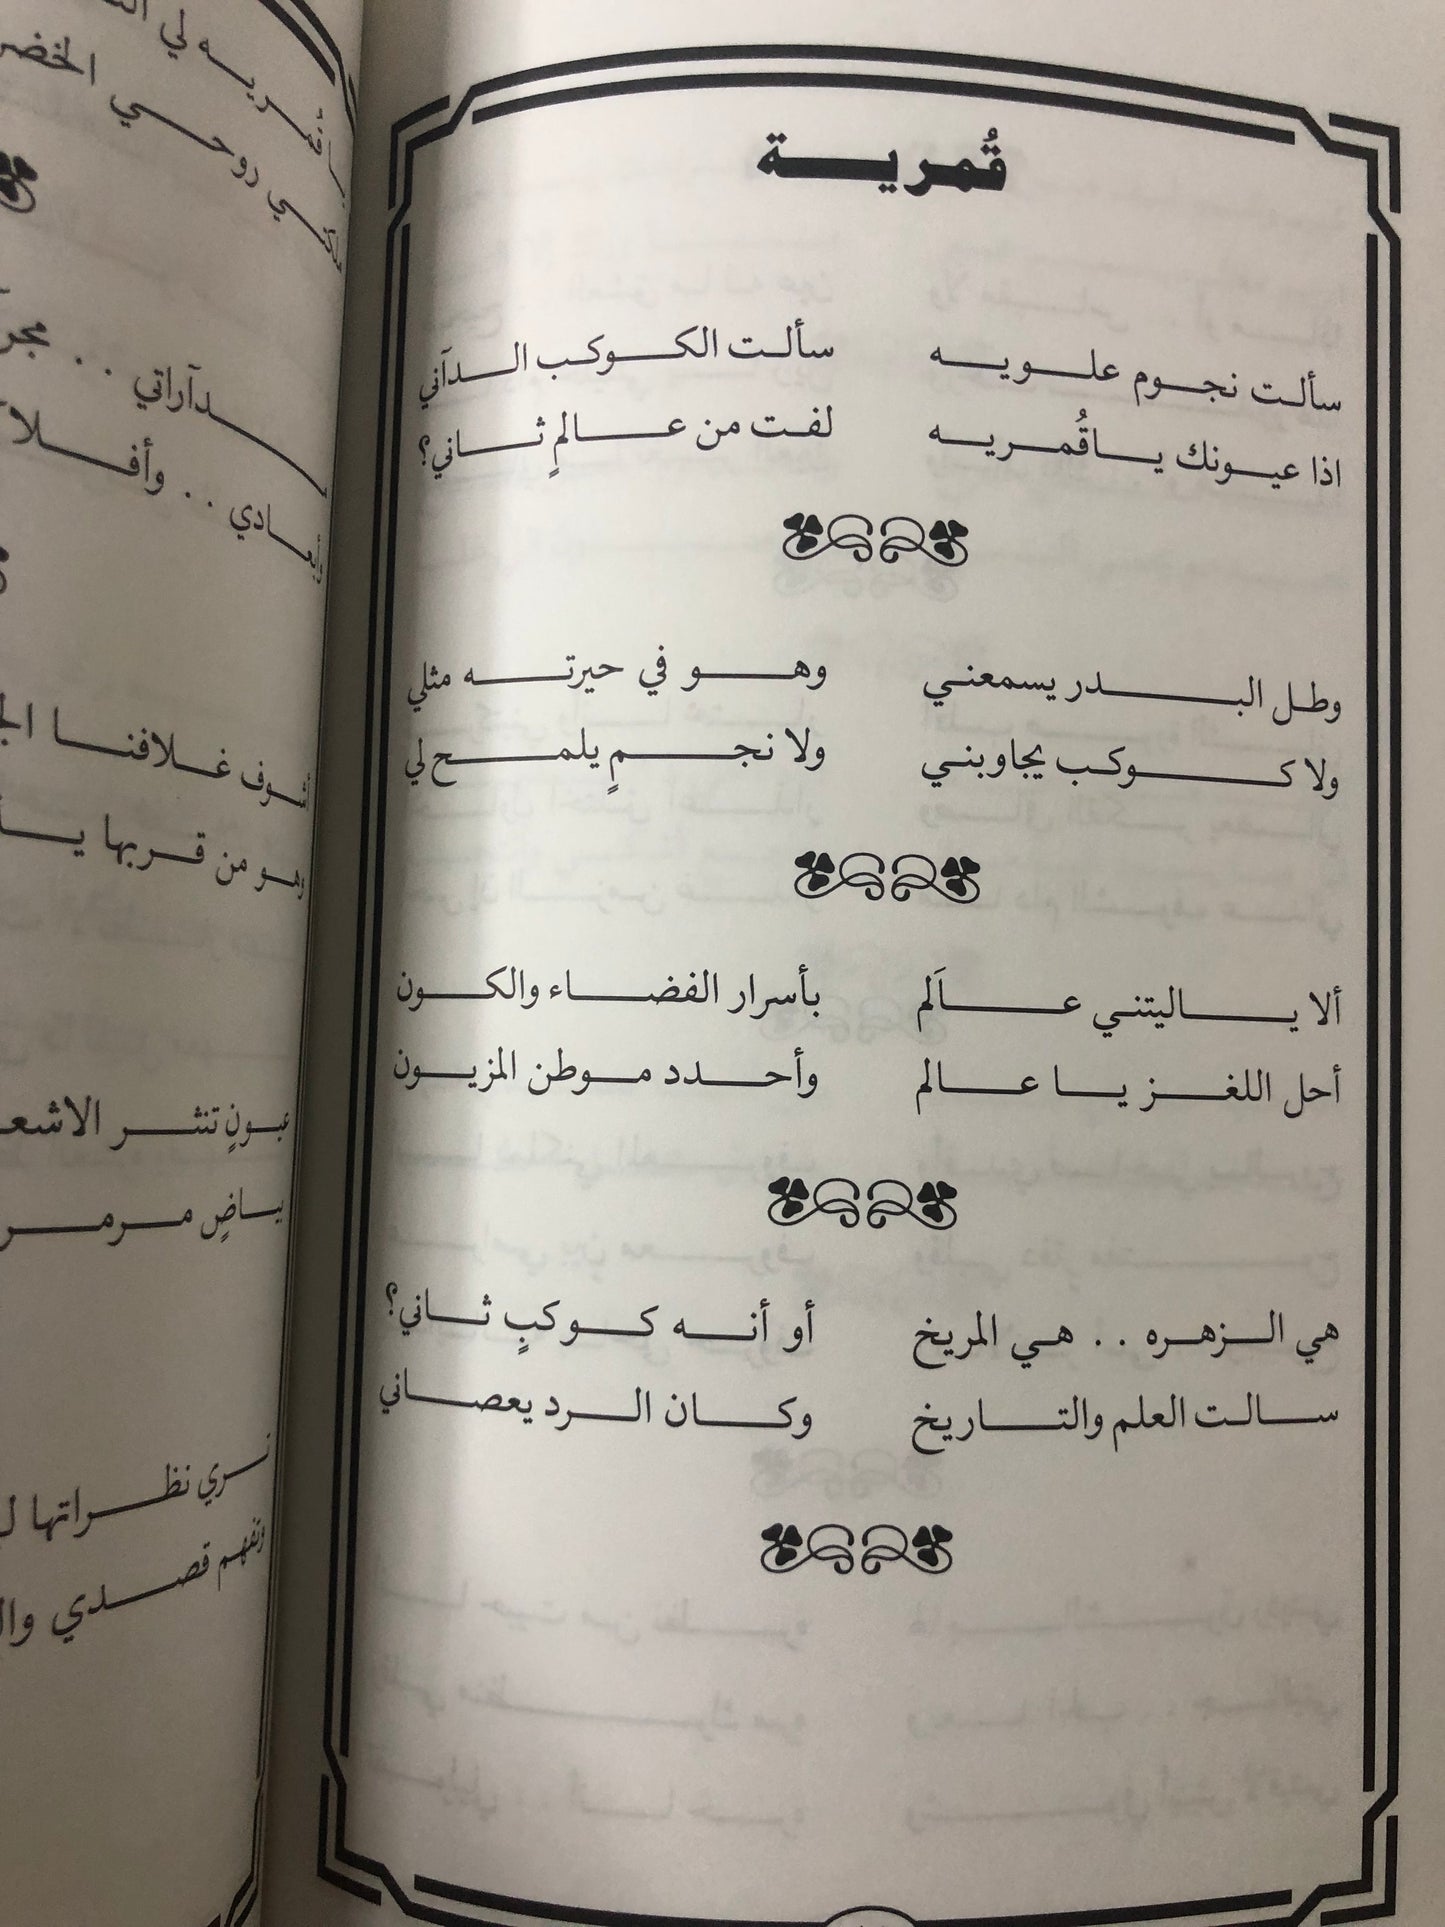 قُمرية
سألت نجوم علويه سألت الكوكب الدآني
اذا عيونك ياقُمريه لفت من عالمٍ ثاني؟
وطل البدر يسمعني وهو في حيرته مثلي
ولا كوكب يجاوبني ولا نجمٍ يلمح لي
ألا ياليتني عاَلم بأسرار الفضاء والكون
أحل اللغز يا عالم وأحدد موطن المزيون
هي الزهره . . هي المريخ أو أنه كوكبٍ ثاني؟
سالت العلم والتاريخ وكان الرد يعصاني
لي
روحي
. . مجر
. . وأفلا
غلافنا
وهو من قربها
تنثر الاشع
بياضٍ مرمر
نظراتها
وتفهم قصدي